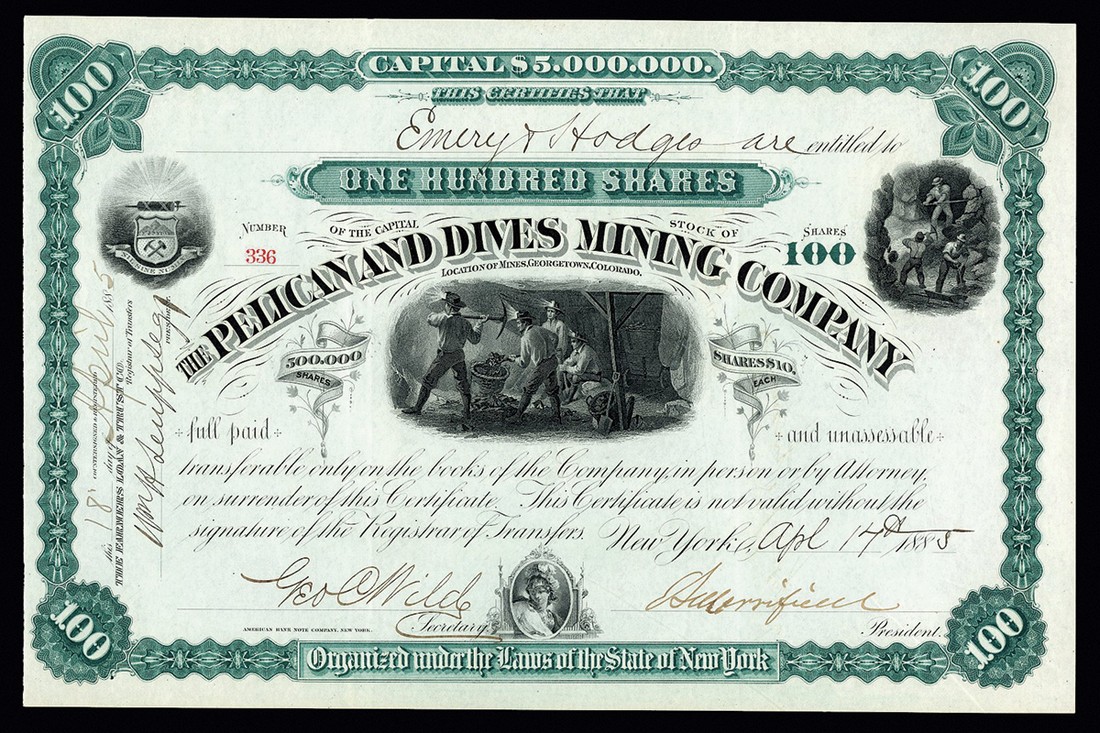 100
CAPITAL $5.000.000.
100
THIS CERTIFIES THAT
Emery & Hodges are entitled to
ONE HUNDRED SHARES
NUMBER
336
OF THE CAPITAL STOCK OF
SHARES
100
THE PELICAN AND DIVES MINING COMPANY
LOCATION OF MINES, GEORGETOWN, COLORADO.
500.000
SHARES
SHARES $10.
EACH
full paid and unassessable
transferable only on the books of the Company, in person or by Attorney,
on surrender of this Certificate. This Certificate is not valid without the
signature of the Registrar of Transfers. New York, Apl 14th 1885
Geo C Wilde
Secretary
President.
AMERICAN BANK NOTE COMPANY, NEW YORK.
100
Organized under the Laws of the State of New York
100
COUNTERSIGNED & REGISTERED
this 18 day of April 1885
THE FARMERS LOAN & TRUST CO.
Registrar of Transfers